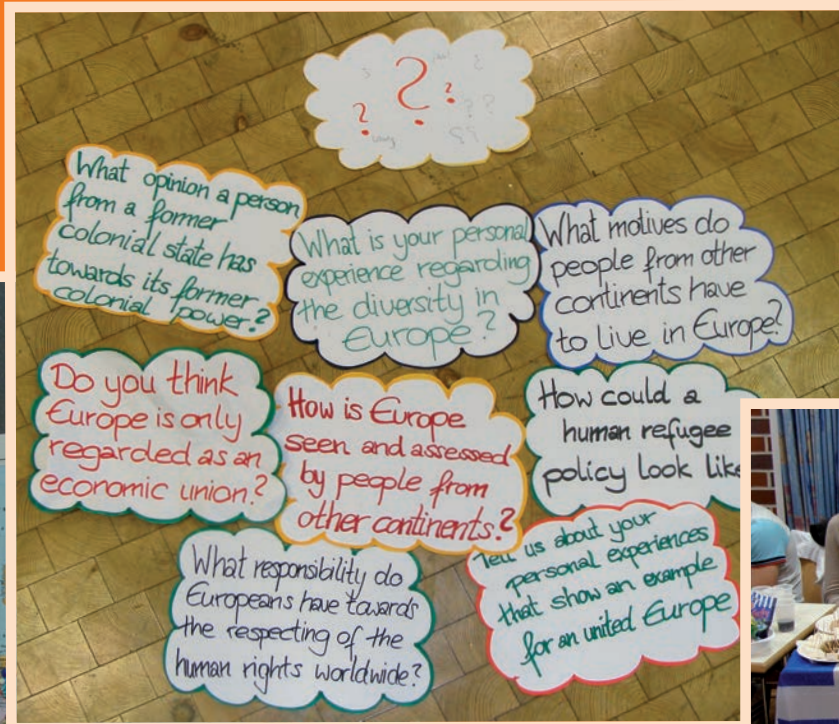 ? ? ?
? ?
What opinion a person
from a former
colonial state has
towards its former
colonial power?
What is your personal
experience regarding
the diversity in
Europe?
What motives do
people from other
continents have
to live in Europe?
Do you think
Europe is only
regarded as an
economic union?
How is Europe
seen and assessed
by people from
other continents?
How could a
human refugee
policy look like
What responsibility do
Europeans have towards
the respecting of the
human rights worldwide?
Tell us about your
personal experiences
that show an example
for an united Europe